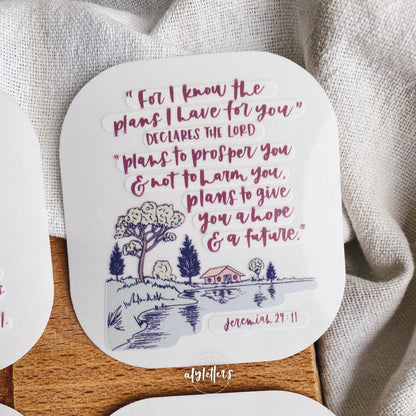 "For I know the
plans I have for you"
DECLARES THE LORD
"plans to prosper you
& not to harm you,
plans to give
you a hope
& a future."
Jeremiah 29:11
alyletters